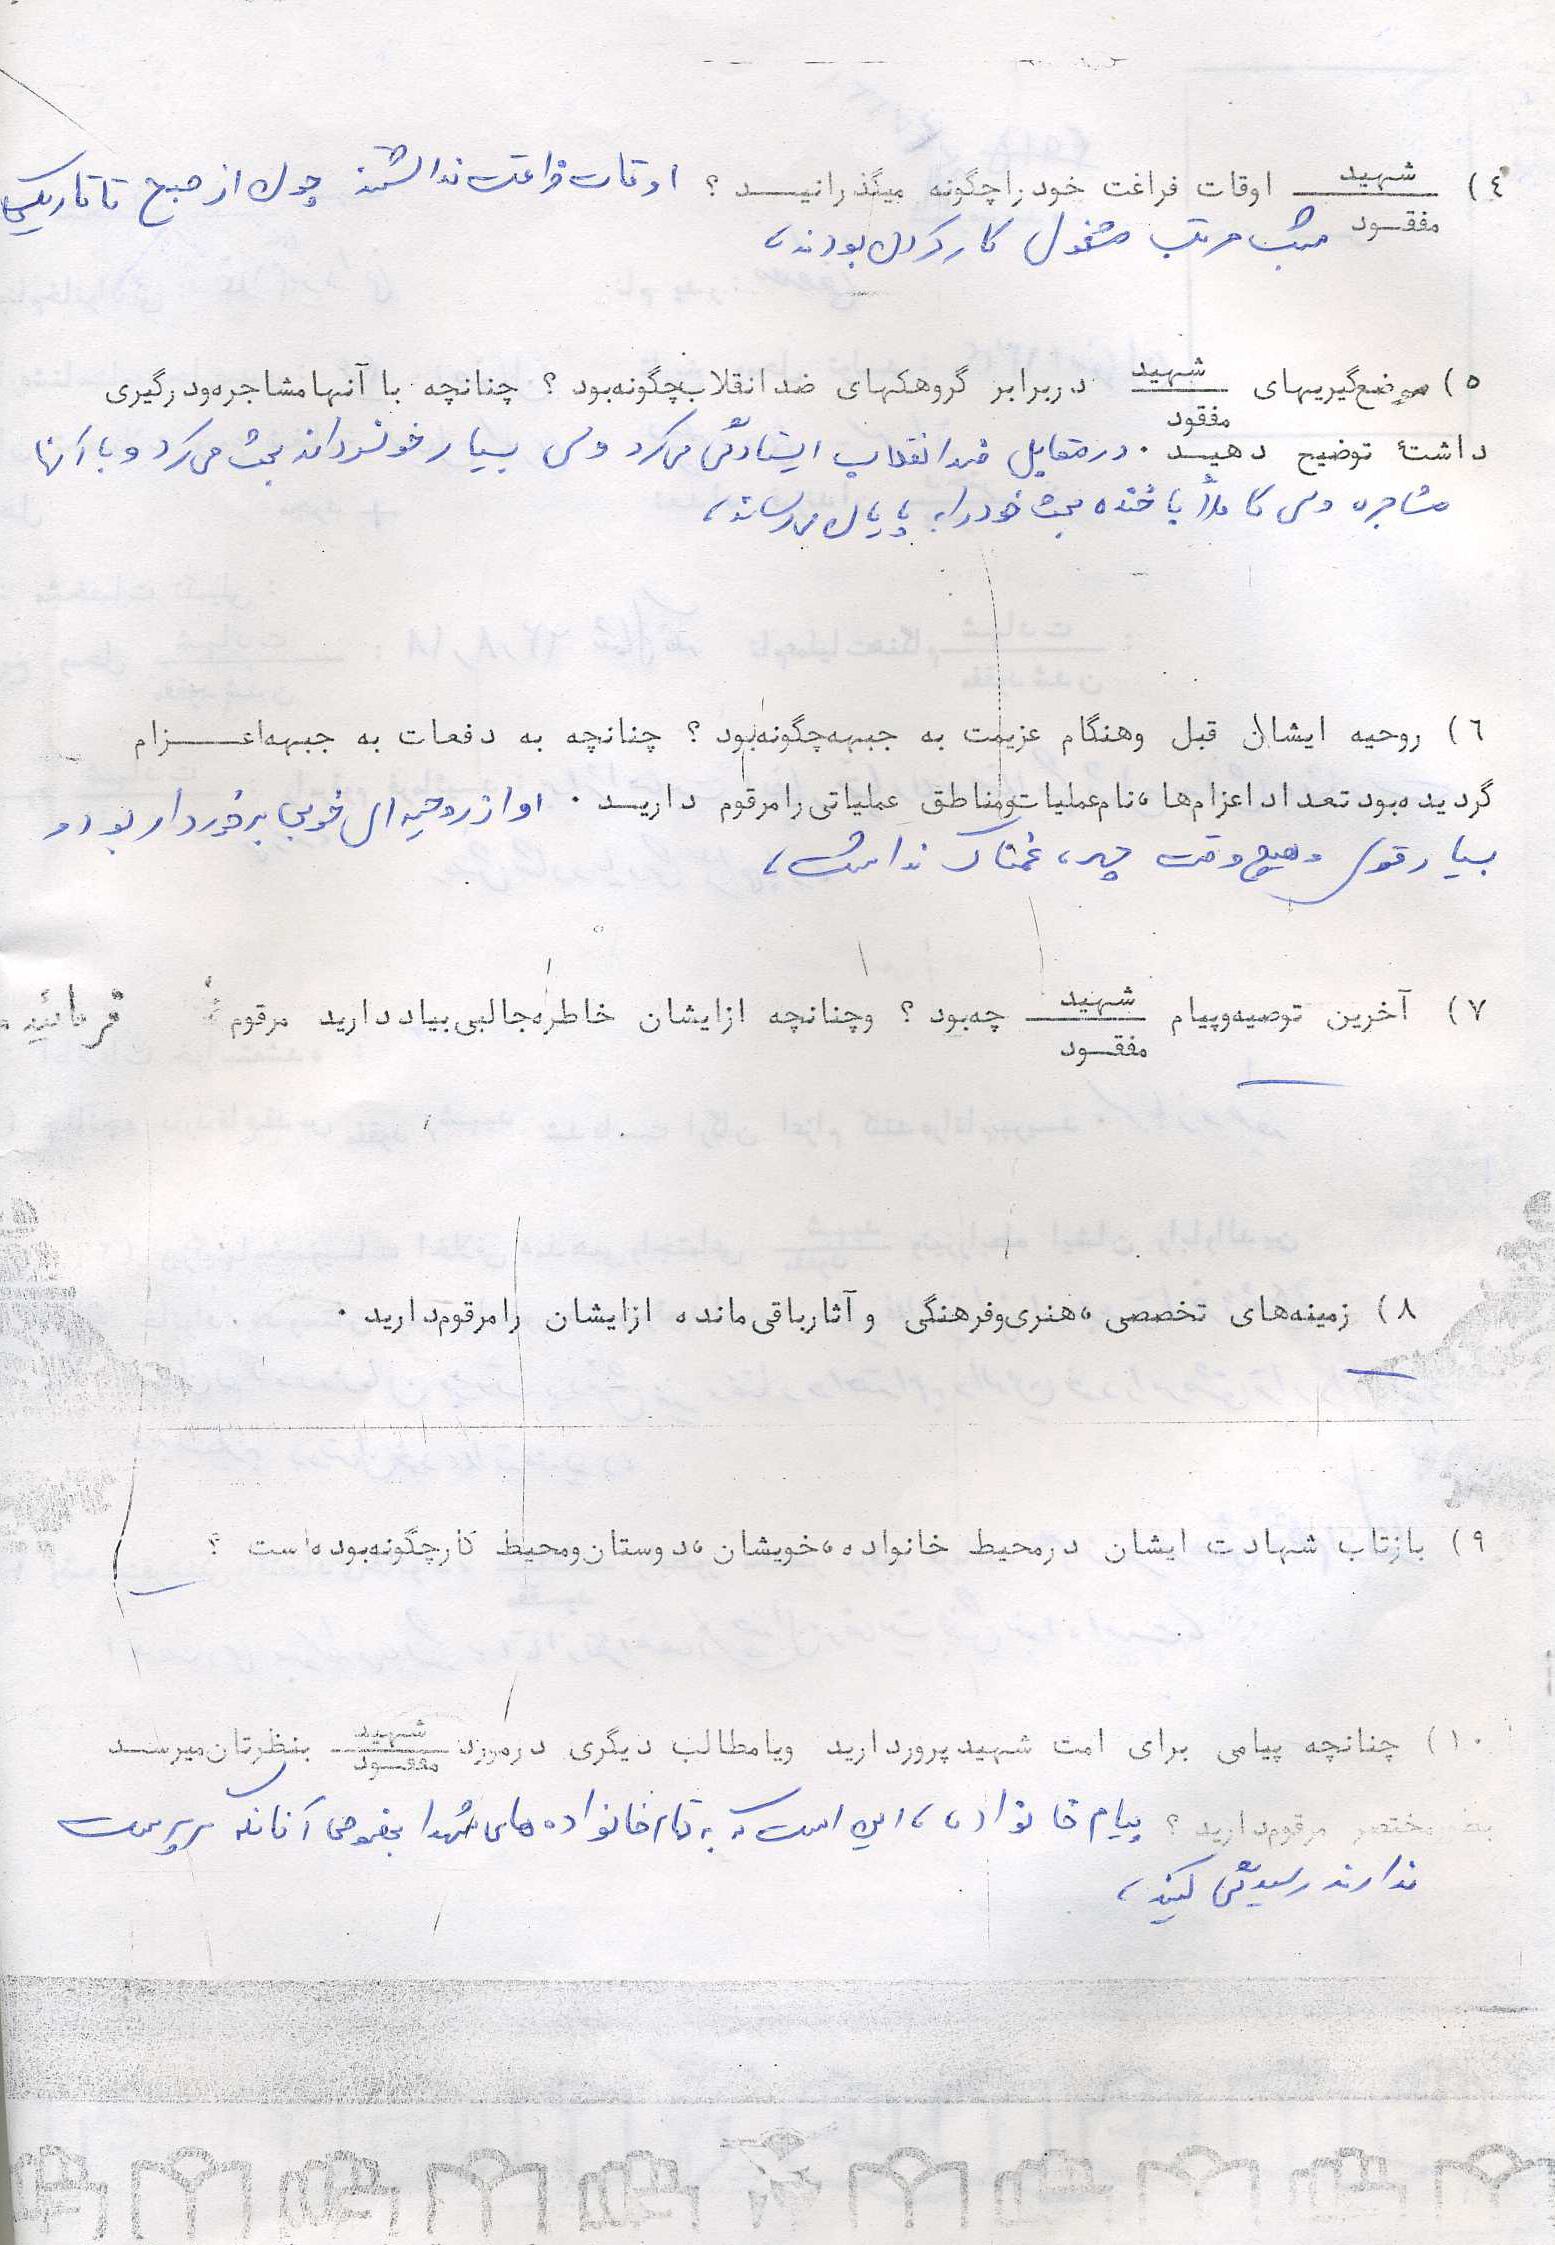 ٤) شهید / مفقود اوقات فراغت خود را چگونه میگذرانید ؟ اوقات فراغت نداشتند چون از صبح تا تاریکی
شب مرتب مشغول کار کردن بودند،
٥) موضع‌گیریهای شهید / مفقود در برابر گروهکهای ضد انقلاب چگونه بود ؟ چنانچه با آنها مشاجره و درگیری
داشته توضیح دهید . در مقابل ضد انقلاب ایستادگی می کرد ولی بسیار خونسردانه بحث می کرد و با آنها
مشاجره ولی کاملاً با خنده بحث خود را به پایان می رساند،
٦) روحیه ایشان قبل و هنگام عزیمت به جبهه چگونه بود ؟ چنانچه به دفعات به جبهه اعزام
گردیده بود تعداد اعزام‌ها ، نام عملیات و مناطق عملیاتی را مرقوم دارید . او از روحیه ای خوبی برخوردار بود و
بسیار قوی و هیچ وقت چهره غمناک نداشت،
٧) آخرین توصیه و پیام شهید / مفقود چه بود ؟ و چنانچه از ایشان خاطره جالبی بیاد دارید مرقوم فرمائید
٨) زمینه‌های تخصصی ، هنری و فرهنگی و آثار باقی مانده از ایشان را مرقوم دارید .
٩) بازتاب شهادت ایشان در محیط خانواده ، خویشان ، دوستان و محیط کار چگونه بوده است ؟
١٠) چنانچه پیامی برای امت شهید پرور دارید و یا مطالب دیگری در مورد شهید / مفقود بنظرتان میرسد
مختصر مرقوم دارید ؟ پیام خانواده ، این است که به تمام خانواده های شهدا بخصوص آنانکه سرپرست
ندارند رسیدگی کنید،